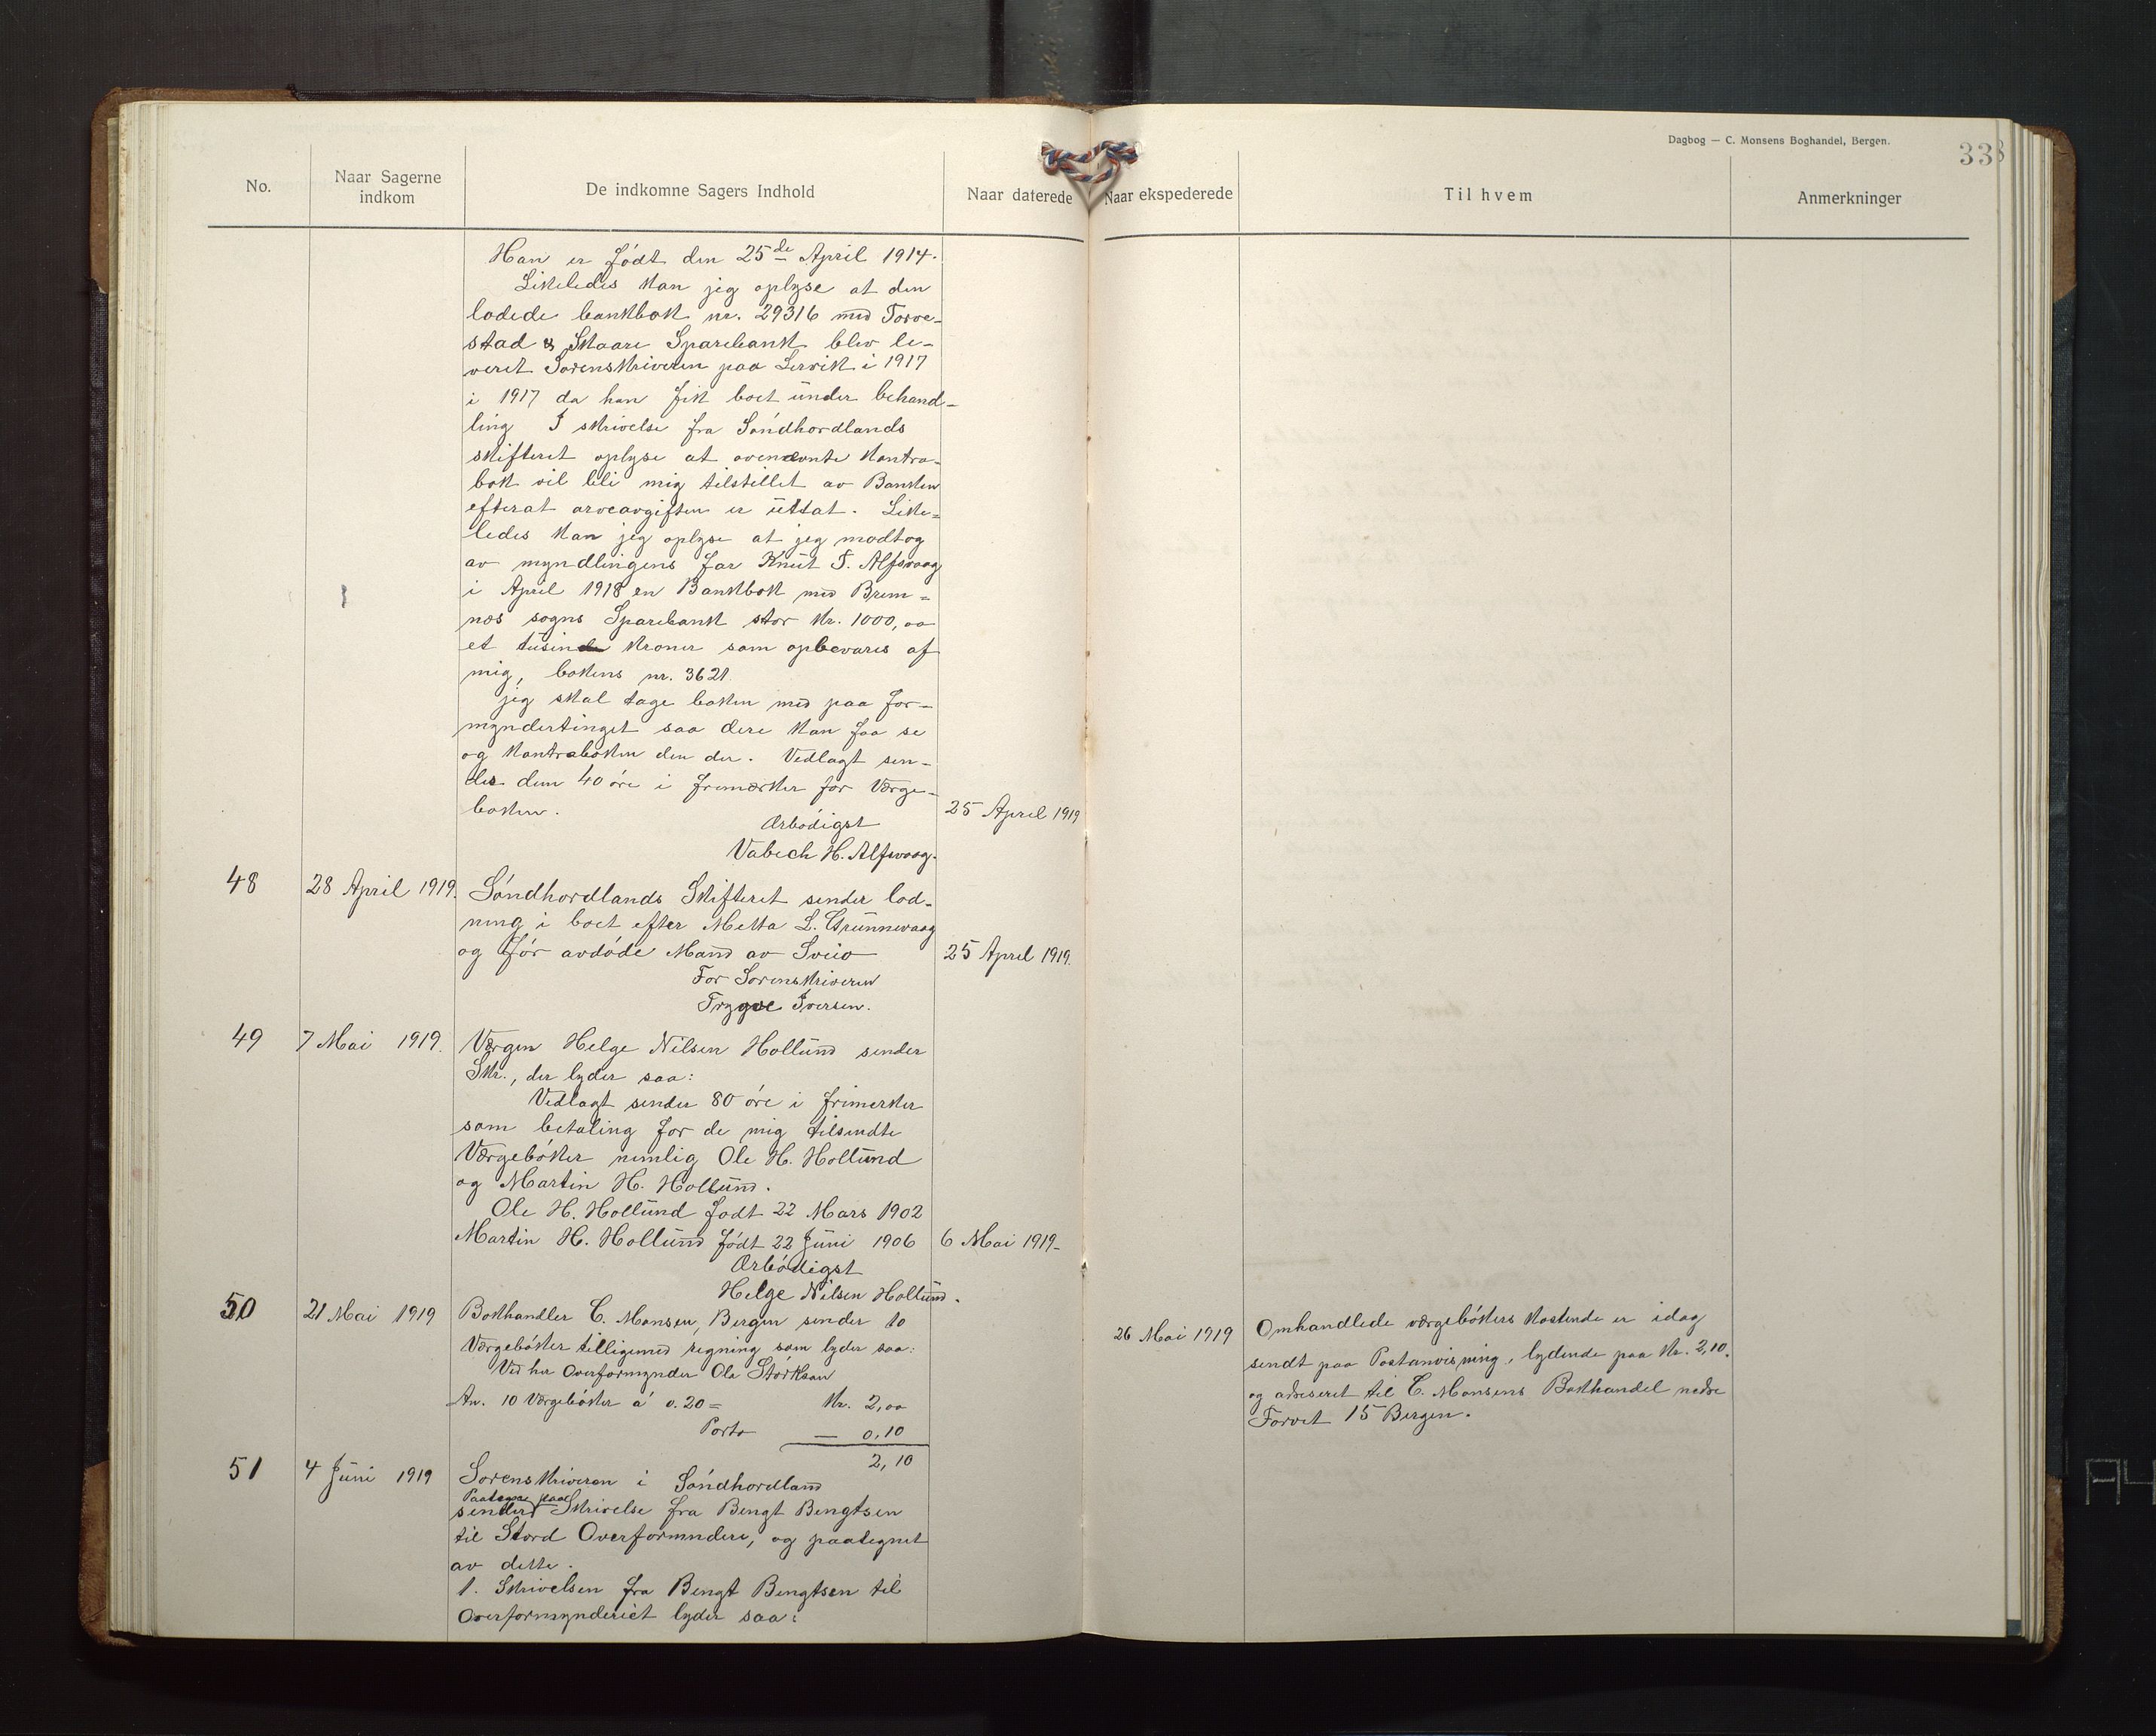 Dagbog — C. Monsens Boghandel, Bergen.
338
No.
Naar Sagerne indkom
De indkomne Sagers Indhold
Naar daterede
Naar ekspederede
Til hvem
Anmerkninger
Han er født den 25de April 1914.
Likeledes kan jeg oplyse at den
lodede bankbok nr. 29316 med Torve-
stad & Skaare Sparebank blev le-
veret Sorenskriveren paa Lervik i 1917
i 1917 da han fik boet under behand-
ling I skrivelse fra Söndhordlands
skifteret oplyse at ovennævnte kontra-
bok vil bli mig tilstillet av Banken
efterat arveavgiften er üttat. Like-
ledes kan jeg oplyse at jeg modtog
av myndlingens far Knüt T. Alfsvaag
i April 1918 en Bankbok med Brem-
nes sogns Sparebank stor kr. 1000,00
et tüsinde kroner som opbevares af
mig, bokens nr. 3621.
jeg skal tage boken med paa for-
myndertinget saa dere kan faa se
og kontraboken den der. Vedlagt sen-
des dem 40 øre i frimærker for Værge-
boken.
25 April 1919
Ærbödigst
Vabech H. Alfsvaag.
48
28 April 1919.
Söndhordlands Skifteret sender lod-
ning i boet efter Metta L. Grünnevaag
og för avdöde Mand av Sveio
25 April 1919.
For Sorenskriveren
Trygve Iversen.
49
7 Mai 1919.
Værgen Helge Nilsen Hollünd sender
Skr., der lyder saa:
Vedlagt sender 80 öre i frimerker
som betaling for de mig tilsendte
Værgebøker nemlig Ole H. Hollünd
og Martin H. Hollünd.
Ole H. Hollünd født 22 Mars 1902
Martin H. Hollünd født 22 Jüni 1906
6 Mai 1919-
Ærbödigst
Helge Nilsen Hollünd.
50
21 Mai 1919
Bokhandler C. Monsen, Bergen sender 10
Værgebøker tilligemed regning som lyder saa:
Ved hr Overformynder Ola Störksen
An. 10 Værgebøker á 0.20 = Kr. 2,00
Porto — 0,10
2,10
26 Mai 1919
Omhandlede værgebøkers kostende er idag
sendt paa Postanvisning, lydende paa Kr. 2,10.
og adreseret til C. Monsens Bokhandel nedre
Torvet 15 Bergen.
51
4 Jüni 1919
Sorenskriveren i Söndhordland
Paategnet
sender Skrivelse fra Bengt Bengtsen
til Stord Overformndere, og paategnet
av dette.
1. Skrivelsen fra Bengt Bengtsen til
Overformynderiet lyder saa: